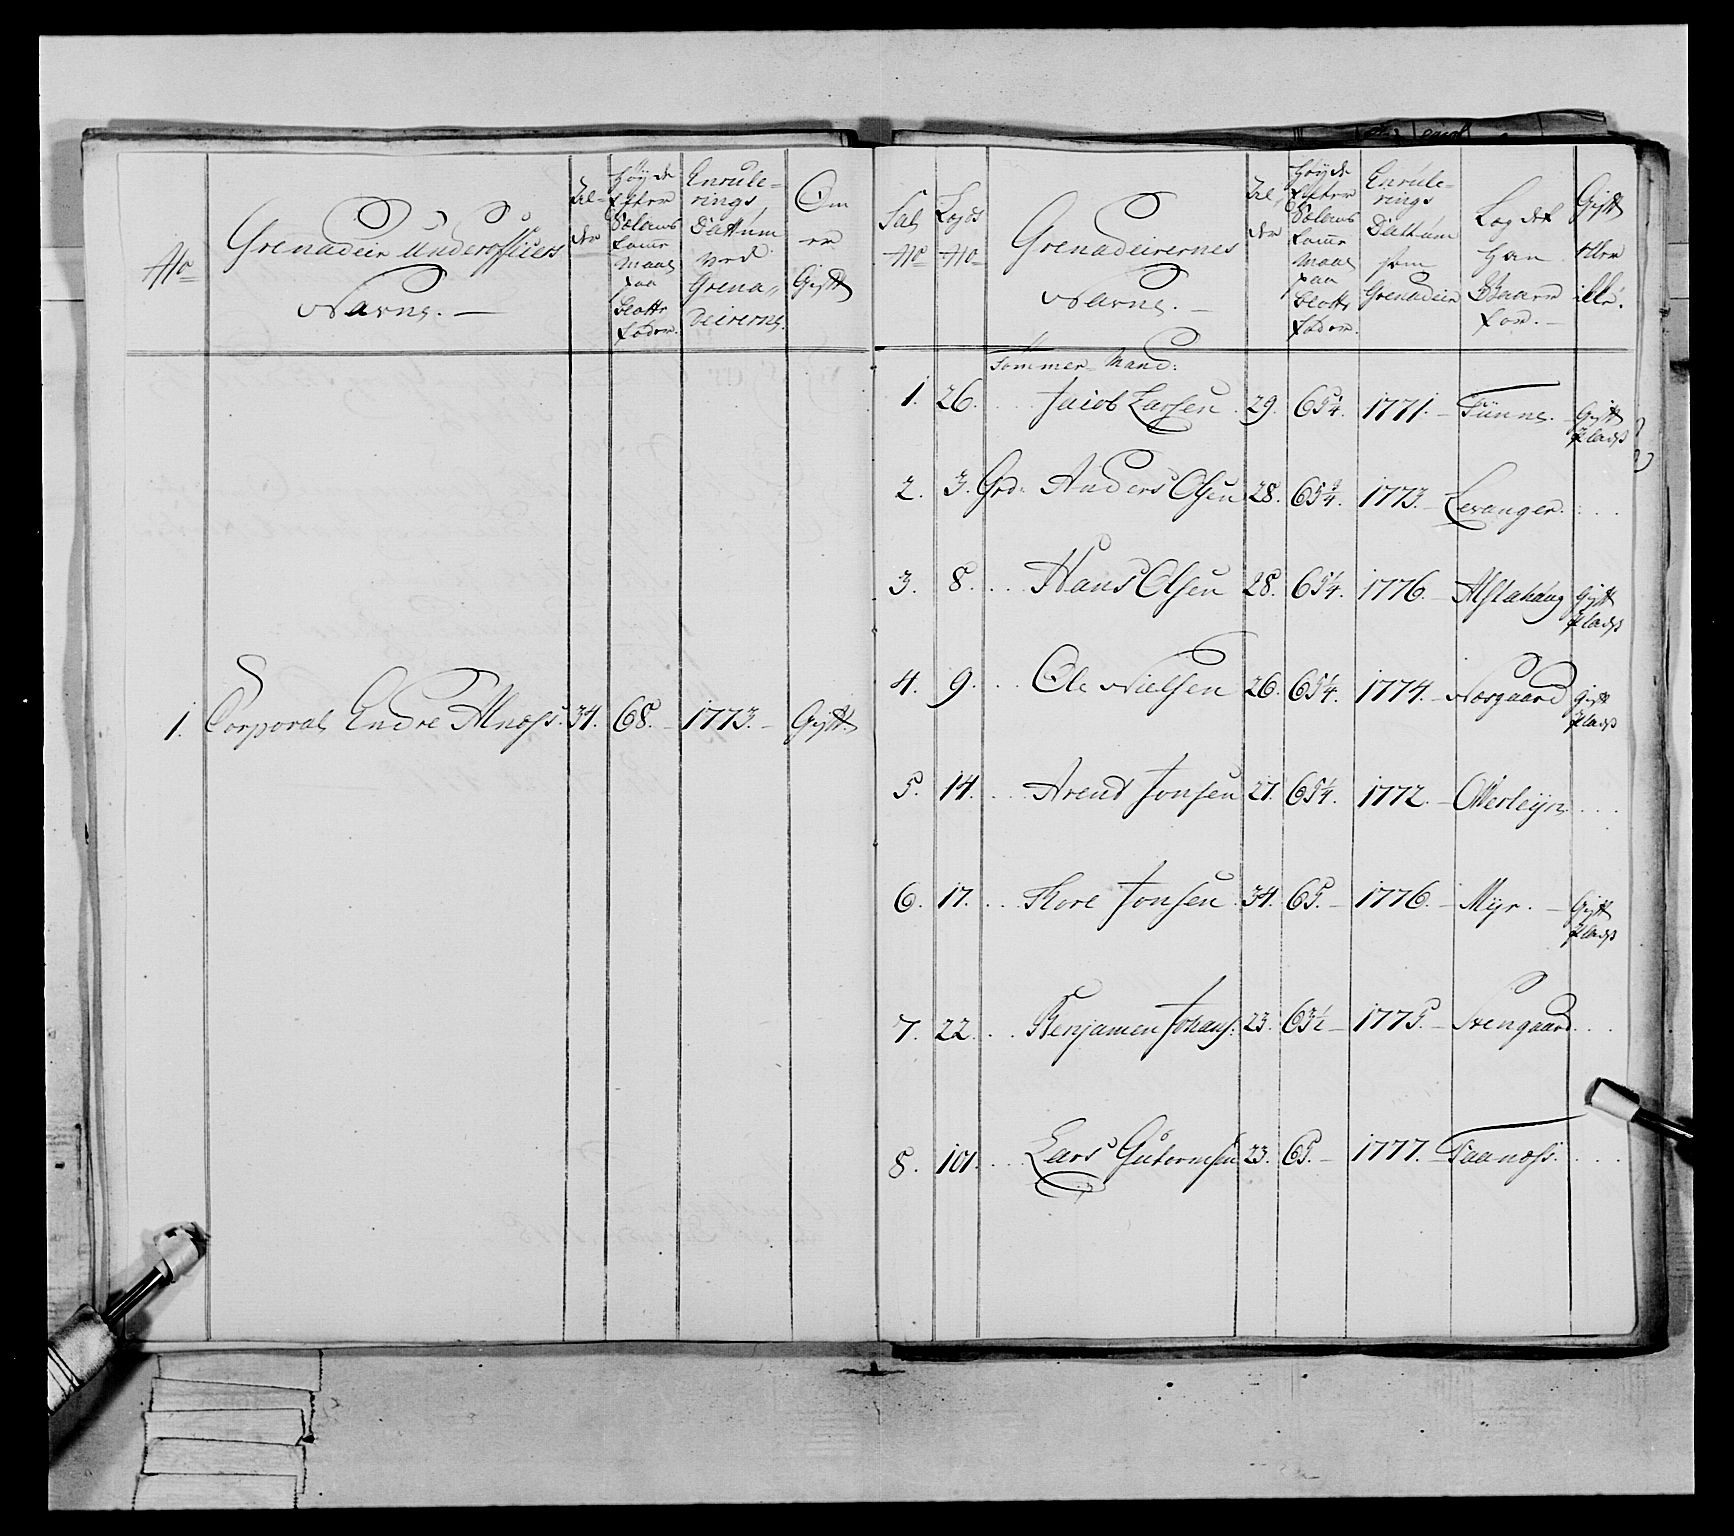 No
Grenadeir Underofficers
Navne. —
Al-
der
Høyde
efter
Solens
Tomr
maal
paa
blotte
føder.
Enrule-
rings
Dattum
ved
Grena-
deirerne.
Om
er
Gift
1. Corporal Endre Alnæss. 34. 68. — 1773. — Gift.
Sal
No
Logds
No
Grenadeirernes
Navne. —
Al-
der
Høyde
efter
Solens
Tomr
maal
paa
blotte
føder.
Enrule-
rings
Dattum
som
Grenadeir
Legdet
han
staar
for. —
Gift
eller
ille.
Tommer-Mand:
1. 26. ... Jacob Larsen. 29. 65 1/4. 1771. — Tünne. — Gift
plads
2. 3. Grd: Anders Olsen 28. 65 3/4. 1773. — Levanger. ...
3. 8. ... Hans Olsen 28. 65 1/4. 1776. — Alstahaug Gift
plads
4. 9. ... Ole Nielsen 26. 65 1/4. 1774. — Norgaard Gift
plads
5. 14. ... Arent Jonsen 27. 65 1/4. 1772. — ...
6. 17. ... Tore Jonsen. 34. 65. — 1776. — Myr. — Gift
plads
7. 22. ... Benjamen Johans: 23. 63 1/2 — 1775. — Stengaard. ...
8. 101. ... Lars Gutormsen 23. 65. — 1777. — Taanæss. ...